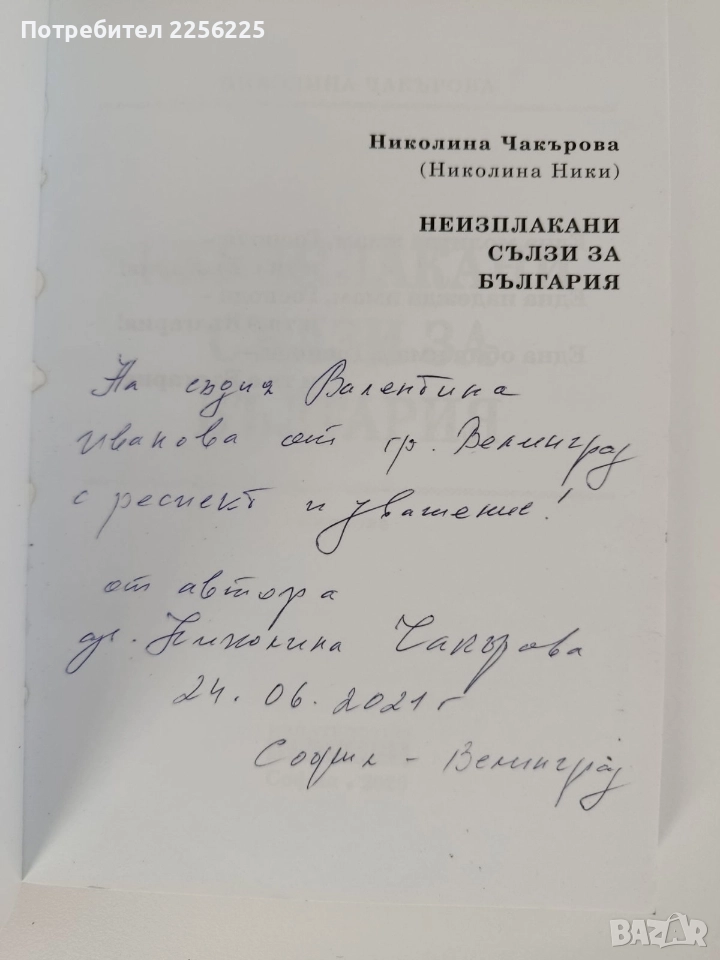 Потребител 2256225
Николина Чакърова
(Николина Ники)
НЕИЗПЛАКАНИ
СЪЛЗИ ЗА
БЪЛГАРИЯ
На съдия Валентина
Иванова от гр. Велинград
с респект и уважение!
от автора
Николина Чакърова
24.06.2021 г
София - Велинград
BAZAR